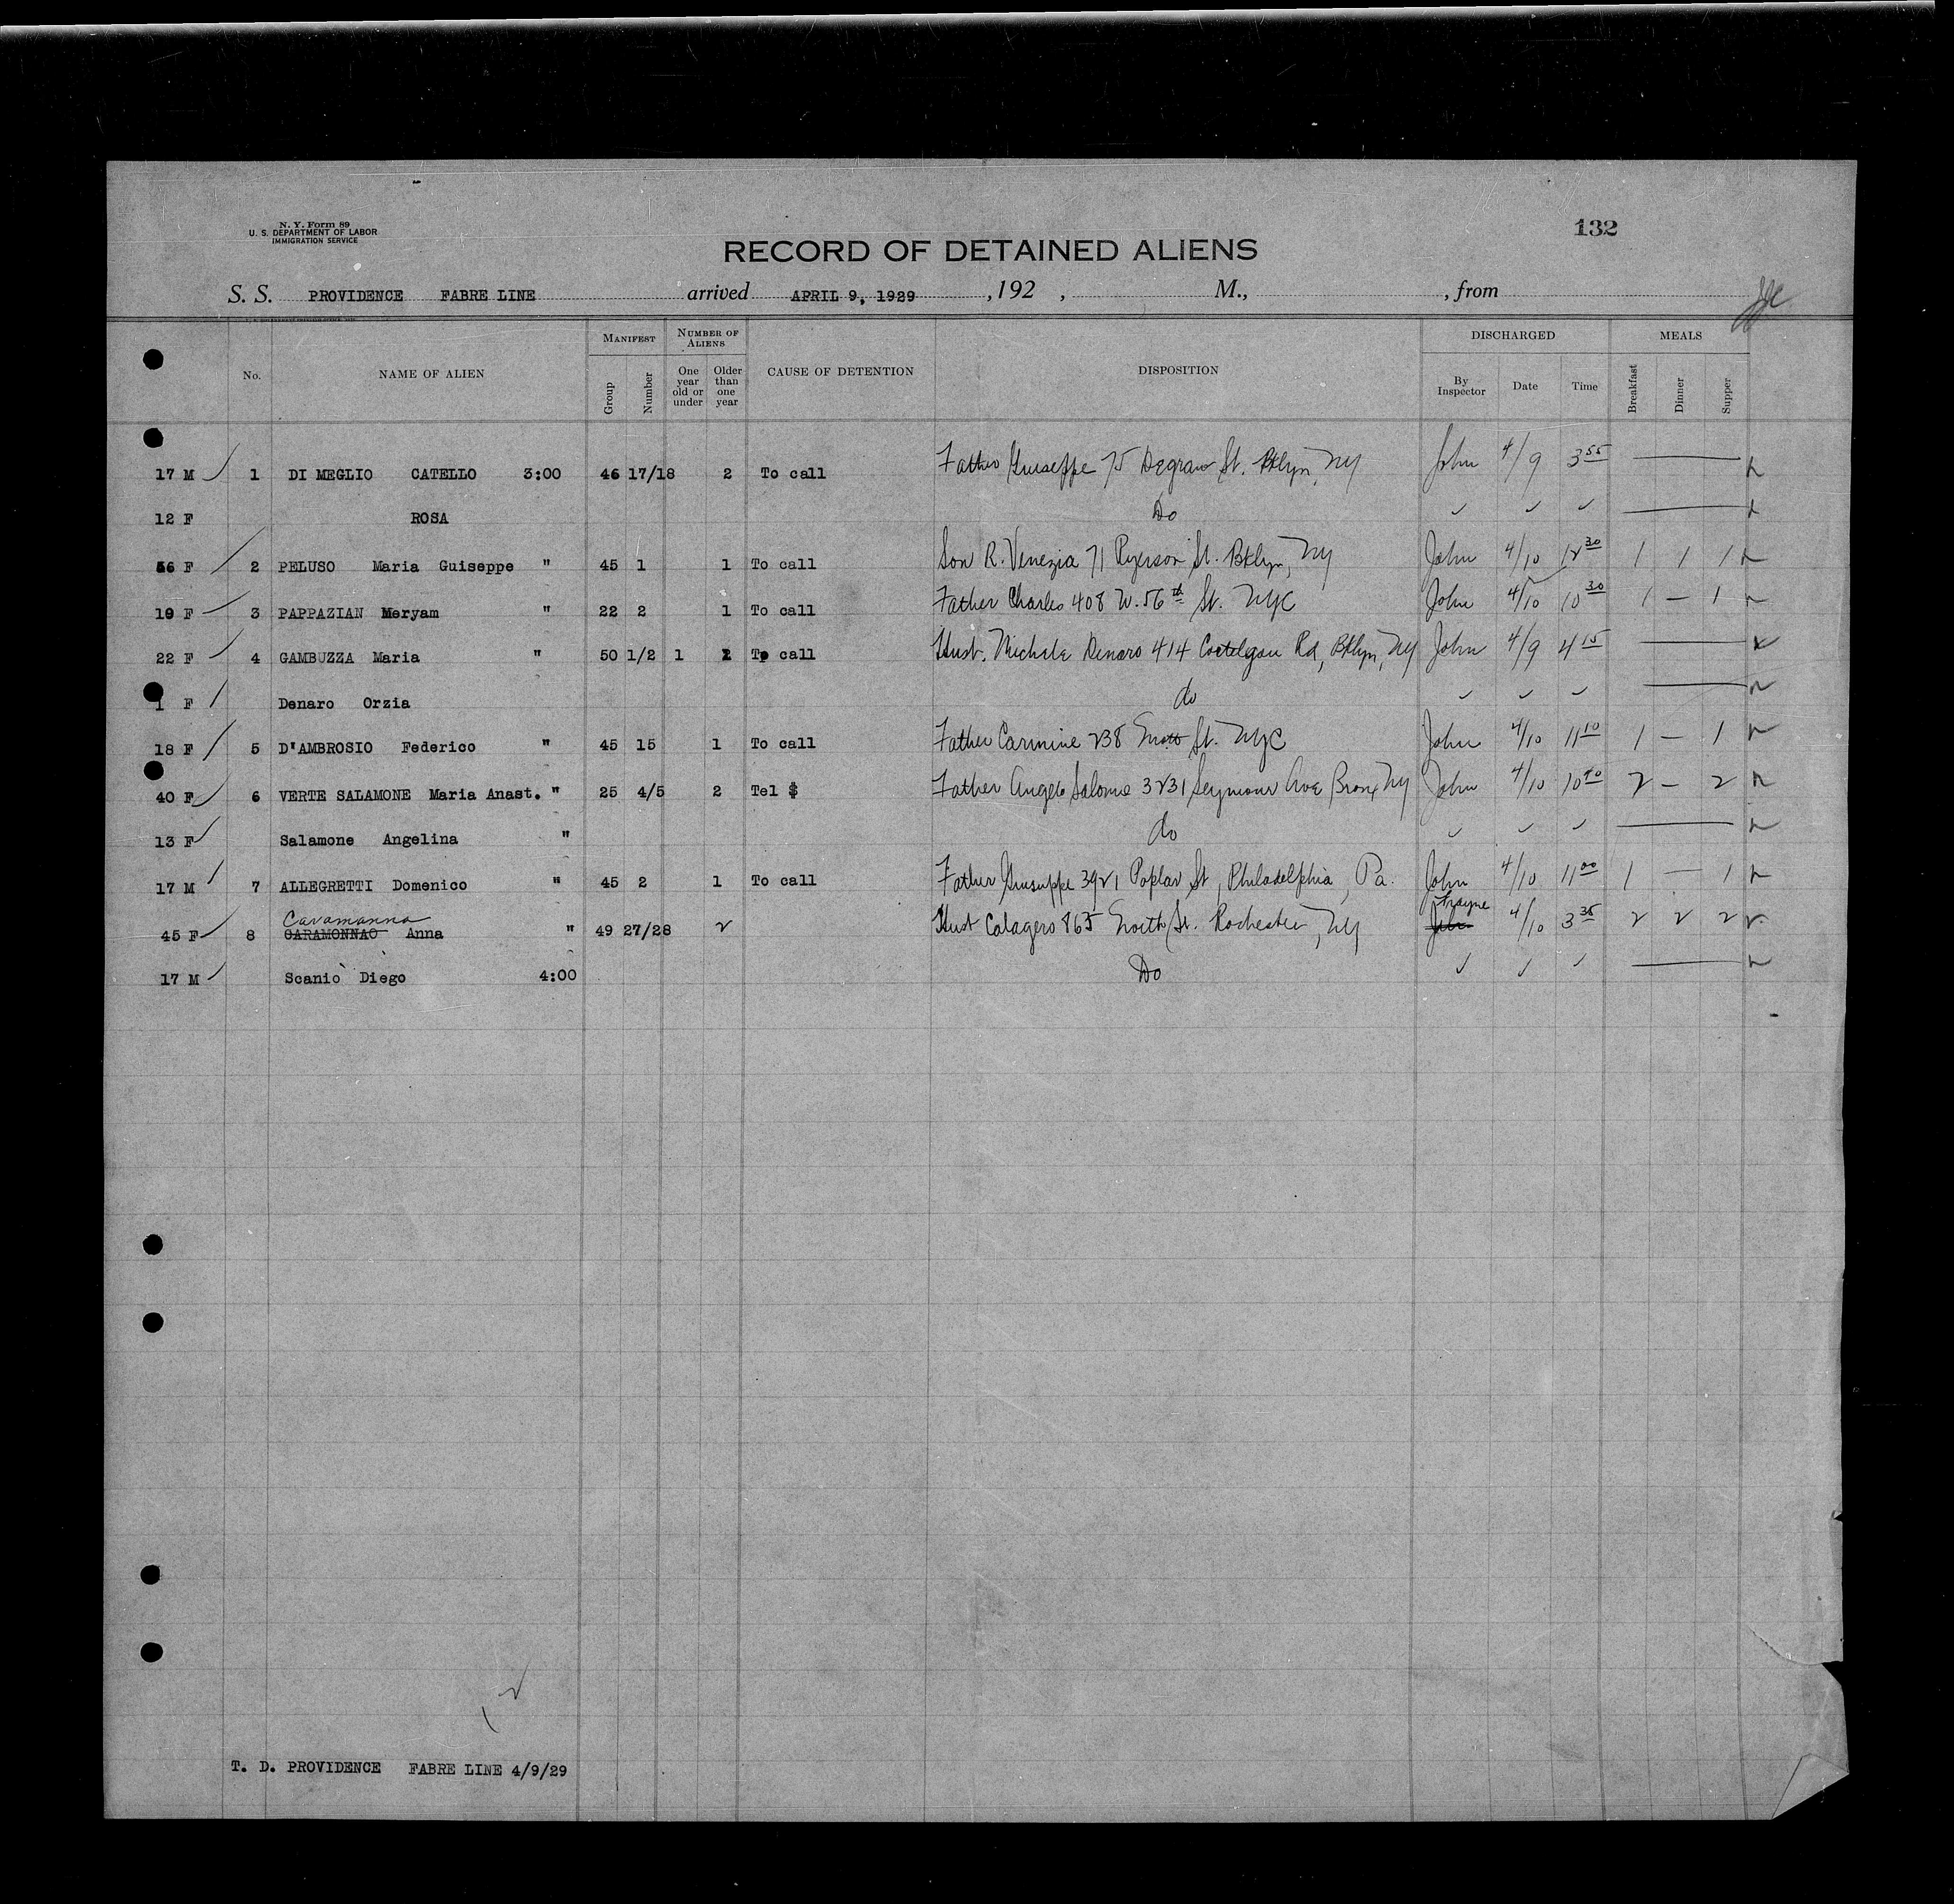 N. Y. Form 89
U. S. DEPARTMENT OF LABOR
IMMIGRATION SERVICE
132
RECORD OF DETAINED ALIENS
S. S. PROVIDENCE FABRE LINE arrived APRIL 9, 1929 , 192 , M., , from
No. NAME OF ALIEN MANIFEST Group Number NUMBER OF ALIENS One year old or under Older than one year CAUSE OF DETENTION DISPOSITION DISCHARGED By Inspector Date Time MEALS Breakfast Dinner Supper
17 M 1 DI MEGLIO CATELLO 3:00 46 17/18 2 To call Father Giuseppe 75 Degraw St. Bklyn, NY John 4/9 3 55
12 F ROSA Do ✓ ✓ ✓
F 2 PELUSO Maria Guiseppe " 45 1 1 To call Son R. Venezia 71 Ryerson St. Bklyn, NY John 4/10 12 30 1 1 1
19 F 3 PAPPAZIAN Meryam " 22 2 1 To call Father Charles 408 W. 56th St. NYC John 4/10 10 30 1 — 1
22 F 4 GAMBUZZA Maria " 50 1/2 1 To call Husb. Michele Denaro 414 Rd, Bklyn, NY John 4/9 4 15
1 F Denaro Orzia do ✓ ✓ ✓
18 F 5 D'AMBROSIO Federico " 45 15 1 To call Father Carmine 238 Mott St. NYC John 4/10 11 10 1 — 1
40 F 6 VERTE SALAMONE Maria Anast. " 25 4/5 2 Tel $ Father Angelo Salome 3231 Seymour Ave Bronx NY John 4/10 10 40 2 — 2
13 F Salamone Angelina " do ✓ ✓ ✓
17 M 7 ALLEGRETTI Domenico " 45 2 1 To call Father Giuseppe 3921 Poplar St, Philadelphia, Pa. John 4/10 11 00 1 — 1
Cavamanna
45 F 8 CARAMONNAO Anna " 49 27/28 2 Husb Calagero 865 North St. Rochester, NY John 4/10 3 35 2 2 2
17 M Scanio Diego 4:00 Do ✓ ✓ ✓
12
T. D. PROVIDENCE FABRE LINE 4/9/29